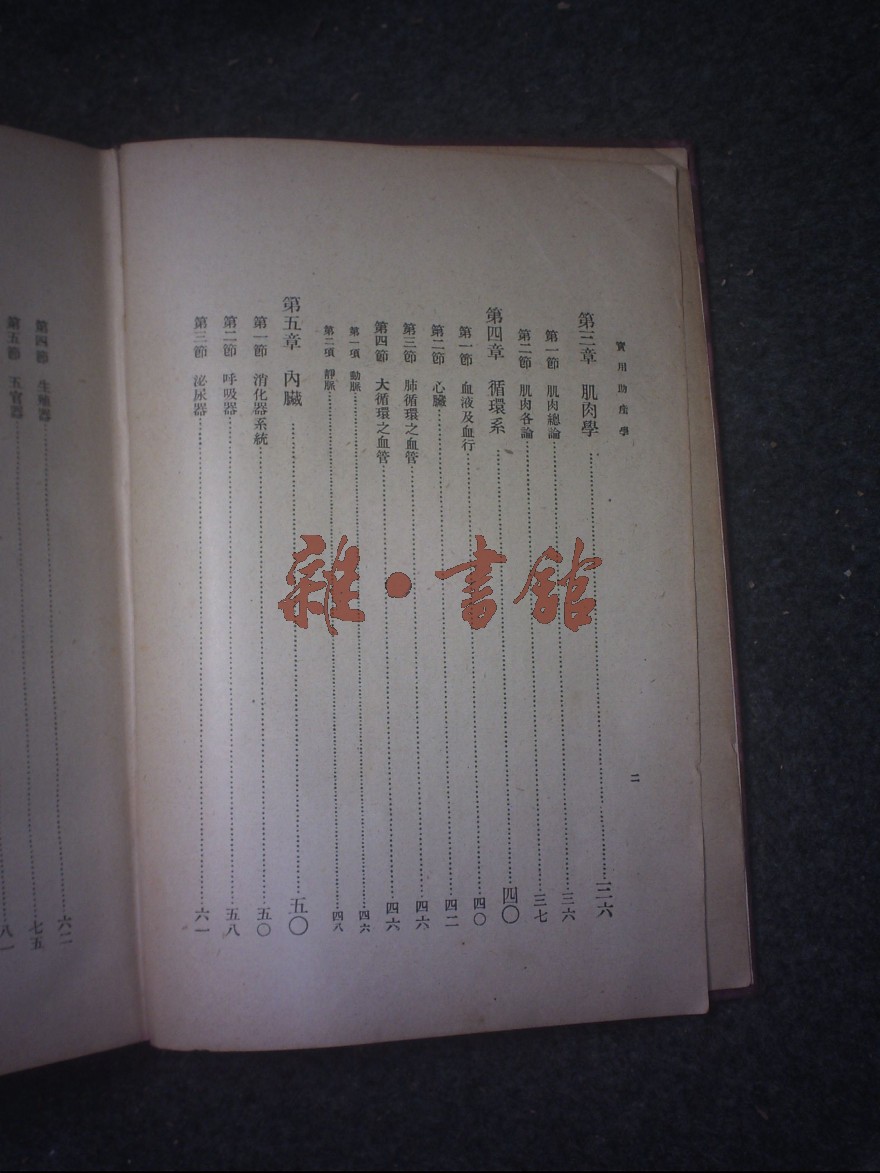 實用助產學
二
第三章 肌肉學……三六
第一節 肌肉總論……三六
第二節 肌肉各論……三七
第四章 循環系……四〇
第一節 血液及血行……四〇
第二節 心臟……四二
第三節 肺循環之血管……四六
第四節 大循環之血管……四六
第一項 動脈……四六
第二項 靜脈……四八
第五章 內臟……五〇
第一節 消化器系統……五〇
第二節 呼吸器……五八
第三節 泌尿器……六一
第四節 生殖器……六二
第五節 五官器……七五
八一
雜·書館